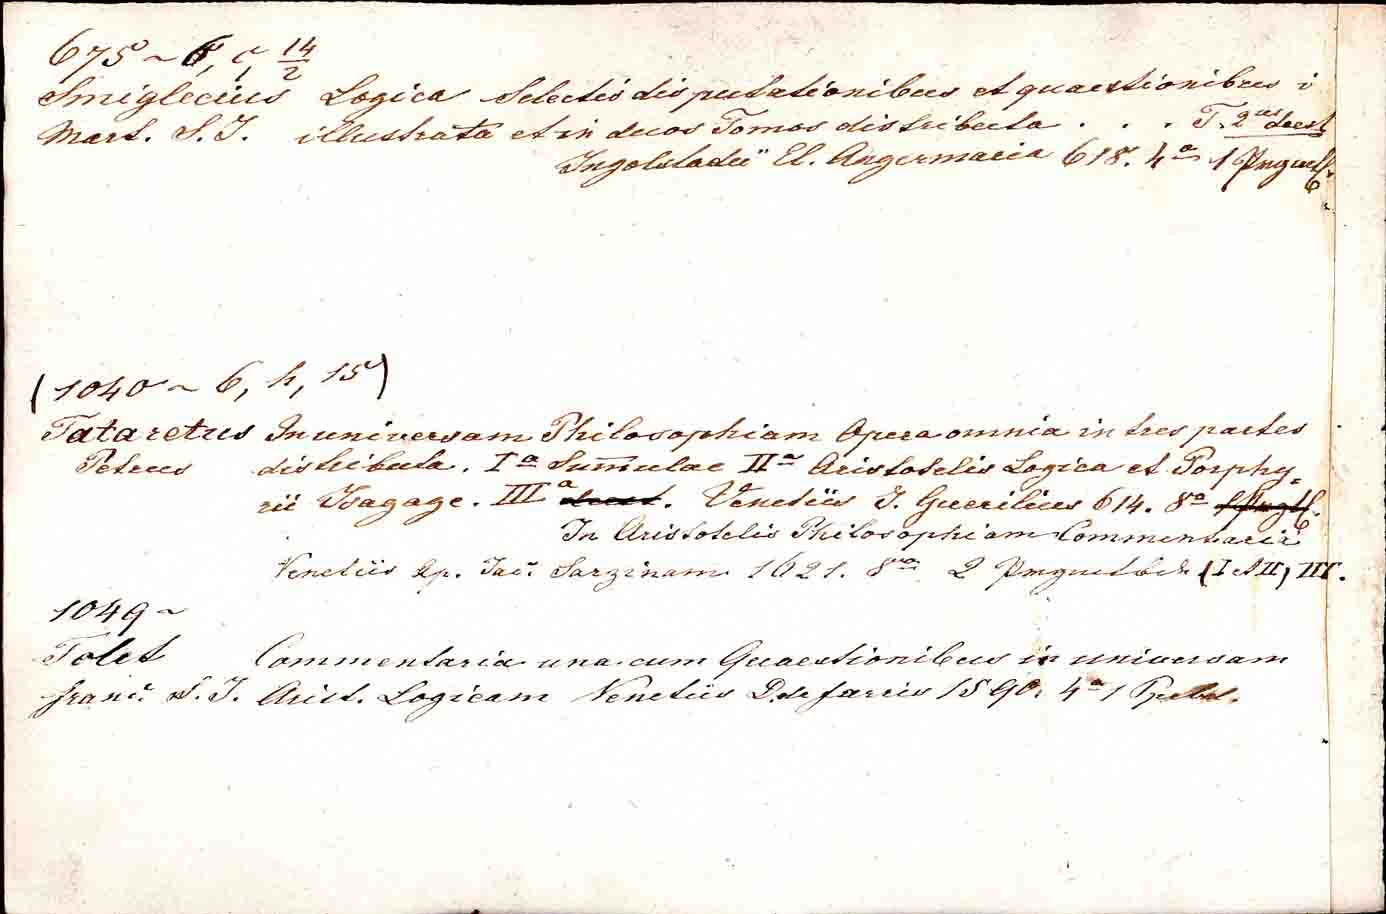 675 ~ 6, c, 14/2
Smiglecius Logica Selectis disputationibus et quaestionibus i
Mart. S. J. illustrata et in duos Tomos distributa . . . T. 2us deest
Ingolstadii El. Angermaria 618. 4a 1
(1040 ~ 6, h, 15)
Tataretus In universam Philosophiam Opera omnia in tres partes
Petrus distributa. Ia Sum̄ulae IIa Aristotelis Logica et Porphy=
rii Isagage. IIIa deest. Venetiis J. Guerilius 614. 8a
In Aristotelis Philosophiam Commentaria
Venetiis Ap. Jac. Sarzinam 1621. 8va 2 (I et II) III.
1049 ~
Tolet Commentaria una cum Quaestionibus in universam
Franc. S. J. Arist. Logicam Venetiis 1590. 4a 1